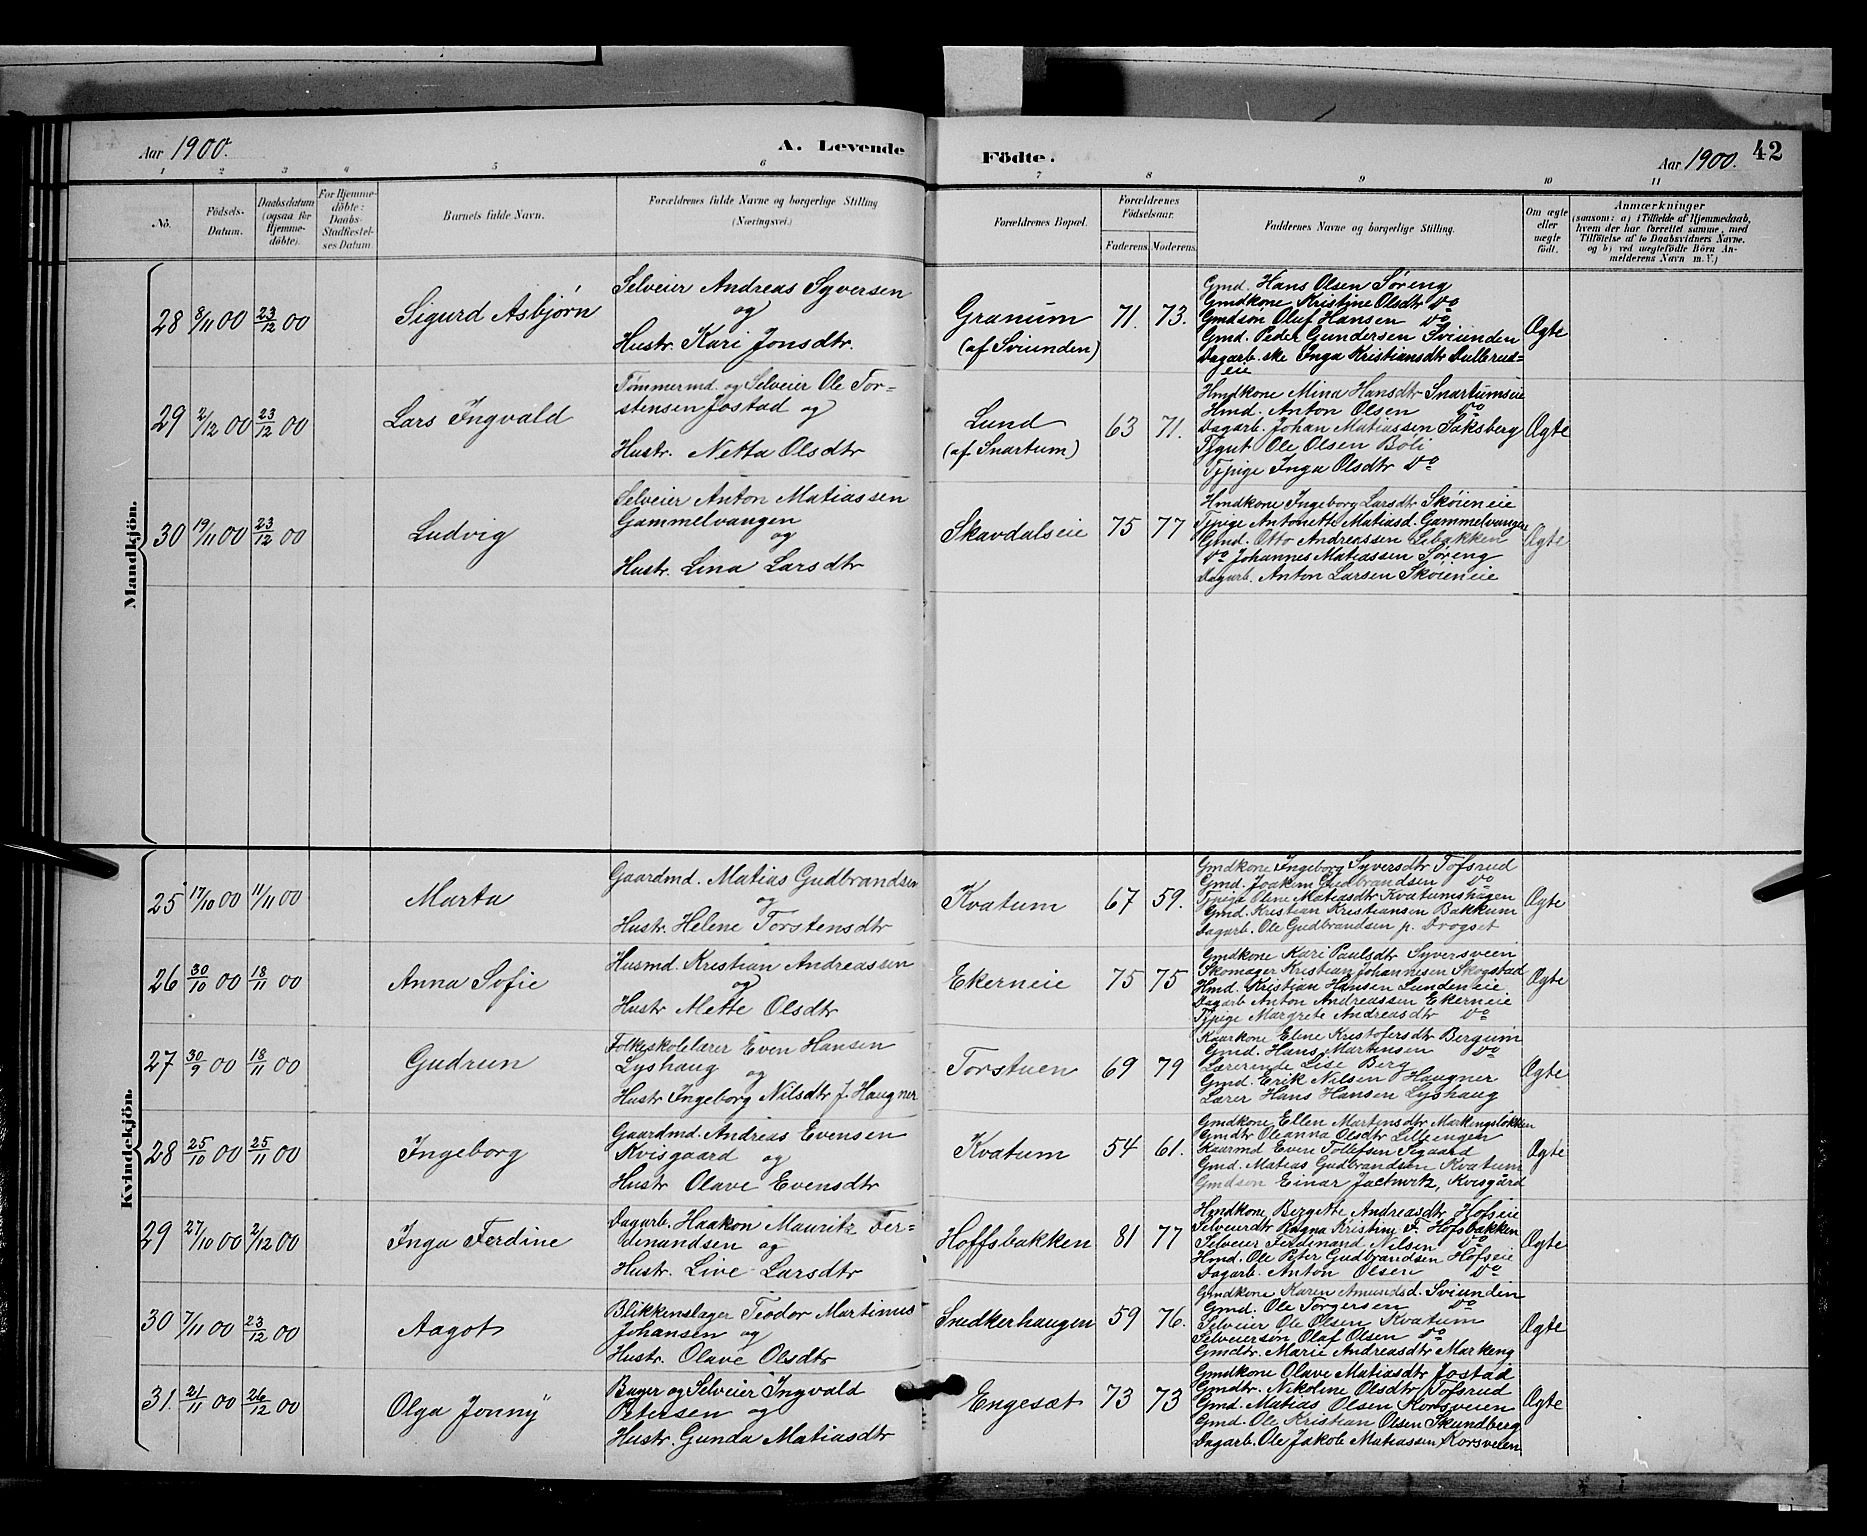 Aar 1900.
A. Levende
Födte.
Aar 1900.
42
1 2 3 4 5 6 7 8 9 10 11
No.
Födsels-Datum.
Daabsdatum (ogsaa for Hjemme-döbte).
For Hjemme-döbte: Daabs-Stadfæstelses Datum
Barnets fulde Navn.
Forældrenes fulde Navne og borgerlige Stilling (Næringsvei.)
Forældrenes Bopæl.
Forældrenes Födselsaar.
Faderens. Moderens.
Faddernes Navne og borgerlige Stilling.
Om ægte eller uægte födt.
Anmærkninger
(saasom: a) i Tilfælde af Hjemmedaab, hvem der har forrettet samme, med Tilföielse af to Daabsvidners Navne. og b) ved uægtefödte Börn An-melderens Navn m. V.)
Mandkjön.
28 8/11 00 23/12 00 Sigurd Asbjørn
Selveier Andreas Syversen
og
Hustr. Kari Jonsdtr.
Granum
(af Sviunden)
71. 73.
Gmd. Hans Olsen Søreng
Gmdkone Kristine Olsdtr Do
Gmdsøn Oluf Hansen Do
Gmd. Peder Gundersen Sviunden
Dagarb.ske Inga Kristiansdtr Dullerud=
eie
Ægte
29 2/12 00 23/12 00 Lars Ingvald
Tømmermd. og Selveier Ole Tor=
stensen Jostad og
Hustr. Netta Olsdtr
Lund
(af Snartum)
63 71.
Hmdkone Mina Hansdtr Snartumseie
Hmd. Anton Olsen Do
Dagarb. Johan Matiassen Saksberg
Tjgut Ole Olsen Bøli
Tjpige Inga Olsdtr Do
Ægte
30 19/11 00 23/12 00 Ludvig
Selveier Anton Matiassen
Gammelvangen
og
Hustr. Lina Larsdtr
Skavdalseie
75 77
Hmdkone Ingeborg Larsdtr Skøieneie
Tjpige Antonette Matiasd. Gammelvangen
Gmd. Otto Andreassen Lebakken
Do Johannes Matiassen Søreng
Dagarb. Anton Larsen Skøieneie
Ægte
Kvindekjön.
25 17/10 00 11/11 00 Marta
Gaardmd. Matias Gudbrandsen
og
Hustr. Helene Torstensdtr
Kvatum
67 59.
Gmdkone Ingeborg Syversdtr Tofsrud
Gmd. Joakim Gudbrandsen Do
Tjpige Oline Matiasdtr Kvatumshagen
Gmd. Kristian Kristiansen Bakkum
Dagarb. Ole Gudbrandsen p. Drogset
Ægte
26 30/10 00 18/11 00 Anna Sofie
Husmd. Kristian Andreassen
og
Hustr Mette Olsdtr
Ekerneie
75 75
Gmdkone Kari Paulsdtr Syversveen
Skomager Kristian Johannesen Skogstad
Hmd. Kristian Hansen Lundeneie
Dagarb Anton Andreassen Ekerneie
Tjpige Margrete Andreasdtr Do
Ægte
27 30/9 00 18/11 00 Gudrun
Folkeskolelærer Even Hansen
Lyshaug og
Hustr Ingeborg Nilsdtr f. Haugner
Torstuen
69 79
Kaarkone Eline Kristofersdtr Bergum
Gmd. Hans Martinsen Do
Lærerinde Lise Berg
Gmd. Erik Nilsen Haugner
Lærer Hans Hansen Lyshaug
Ægte
28 25/10 00 25/11 00 Ingeborg
Gaardmd. Andreas Evensen
Kvisgaard og
Hustr Olave Evensdtr
Kvatum
54 61.
Gmdkone Ellen Martinsdtr Markengsløkken
Gmdtr Oleanna Olsdtr Lilleengen
Kaarmd Even Tollefsen Sigaard
Gmd. Matias Gudbrandsen Kvatum
Gmdsøn Einar Jachwitz, Kvisgård
Ægte
29 27/10 00 2/12 00 Inga Ferdine
Dagarb. Haakon Mauritz Fer=
dinandsen og
Hustr. Live Larsdtr
Hoffsbakken
81 77
Hmdkone Bergette Andreasdtr Hofseie
Selveierdtr Ragna Kristine F. Hofsbakken
Selveier Ferdinand Nilsen Do
Hmd. Ole Peter Gudbrandsen Hofseie
Dagarb. Anton Olsen Do
Ægte
30 7/11 00 23/12 00 Aagot
Blikkenslager Teodor Martinus
Johansen og
Hustr. Olave Olsdtr
Snedkerhaugen
59 76.
Gmdkone Karen Amundsd. Sviunden
Gmd. Ole Torgersen Do
Selveier Ole Olsen Kvatum
Selveiersøn Olaf Olsen Do
Gmdtr. Marie Andreasdtr Markeng
Ægte
31. 21/11 00 26/12 00 Olga Jonny
Bager og Selveier Ingvald
Petersen og
Hustr. Gunda Matiasdtr
Engesæt
73 73
Gmdkone Olave Matiasdtr Jostad
Gmdtr. Nikoline Olsdtr Tofsrud
Gmd. Matias Olsen Korsveien
Gmd. Ole Kristian Olsen Skundberg
Dagarb. Ole Jakob Matiassen Korsveien
Ægte